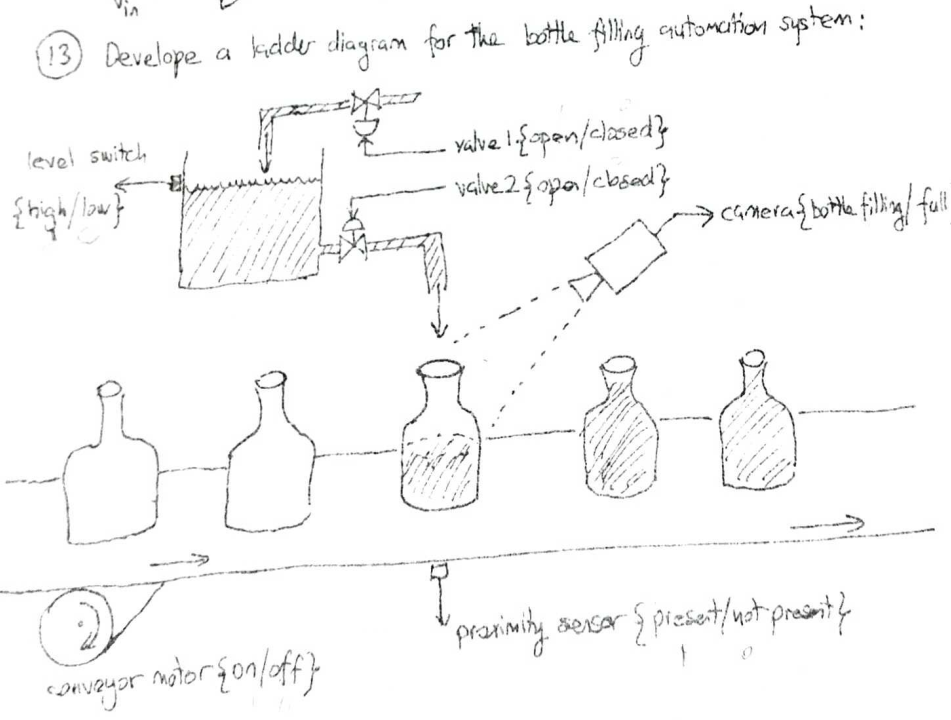 Vin
13 Develope a ladder diagram for the bottle filling automation system:
level switch
{high/low}
valve 1 {open/closed}
valve 2 {open/closed}
camera {bottle filling/full
proximity sensor {present/not present}
1 0
conveyor motor {on/off}